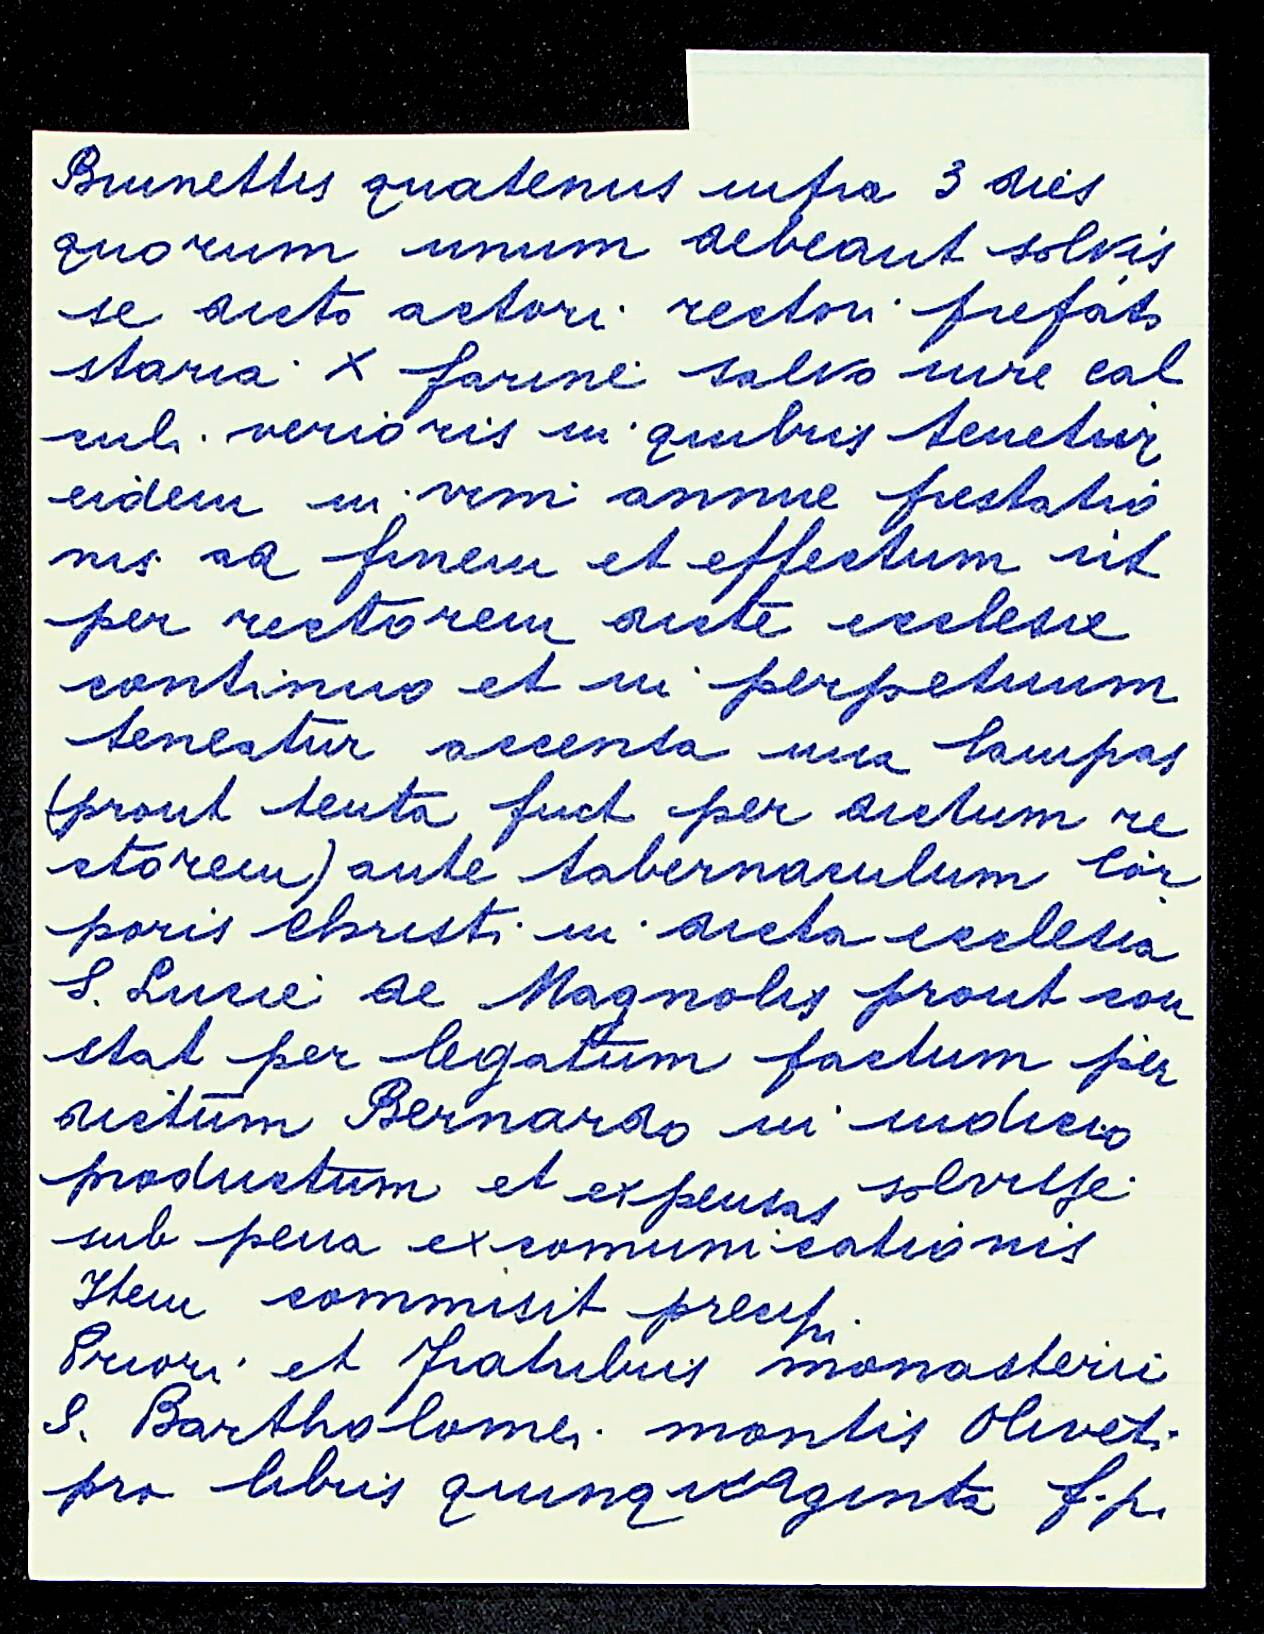 Brunettis quatenus infra 3 dies
quorum unum debeant solvis
se dicto actori rectori prefato
staria X farine salvo iure cal
culi verioris in quibus tenetur
eidem in vim annue prestatio
nis ad finem et effectum ut
per rectorem dicte ecclesie
continuo et in perpetuum
teneatur accensa una lampas
(prout tenta fuit per dictum re
ctorem) ante tabernaculum Cor
poris Christi in dicta ecclesia
S. Lucie de Magnolis prout con
stat per legatum factum per
dictum Bernardo in iudicio
productum et expensas solvisse
sub pena excomunicationis
Item commisit precipi
Priori et fratribus monasterii
S. Bartholomei montis Oliveti
pro libris quinquaginta f.p.